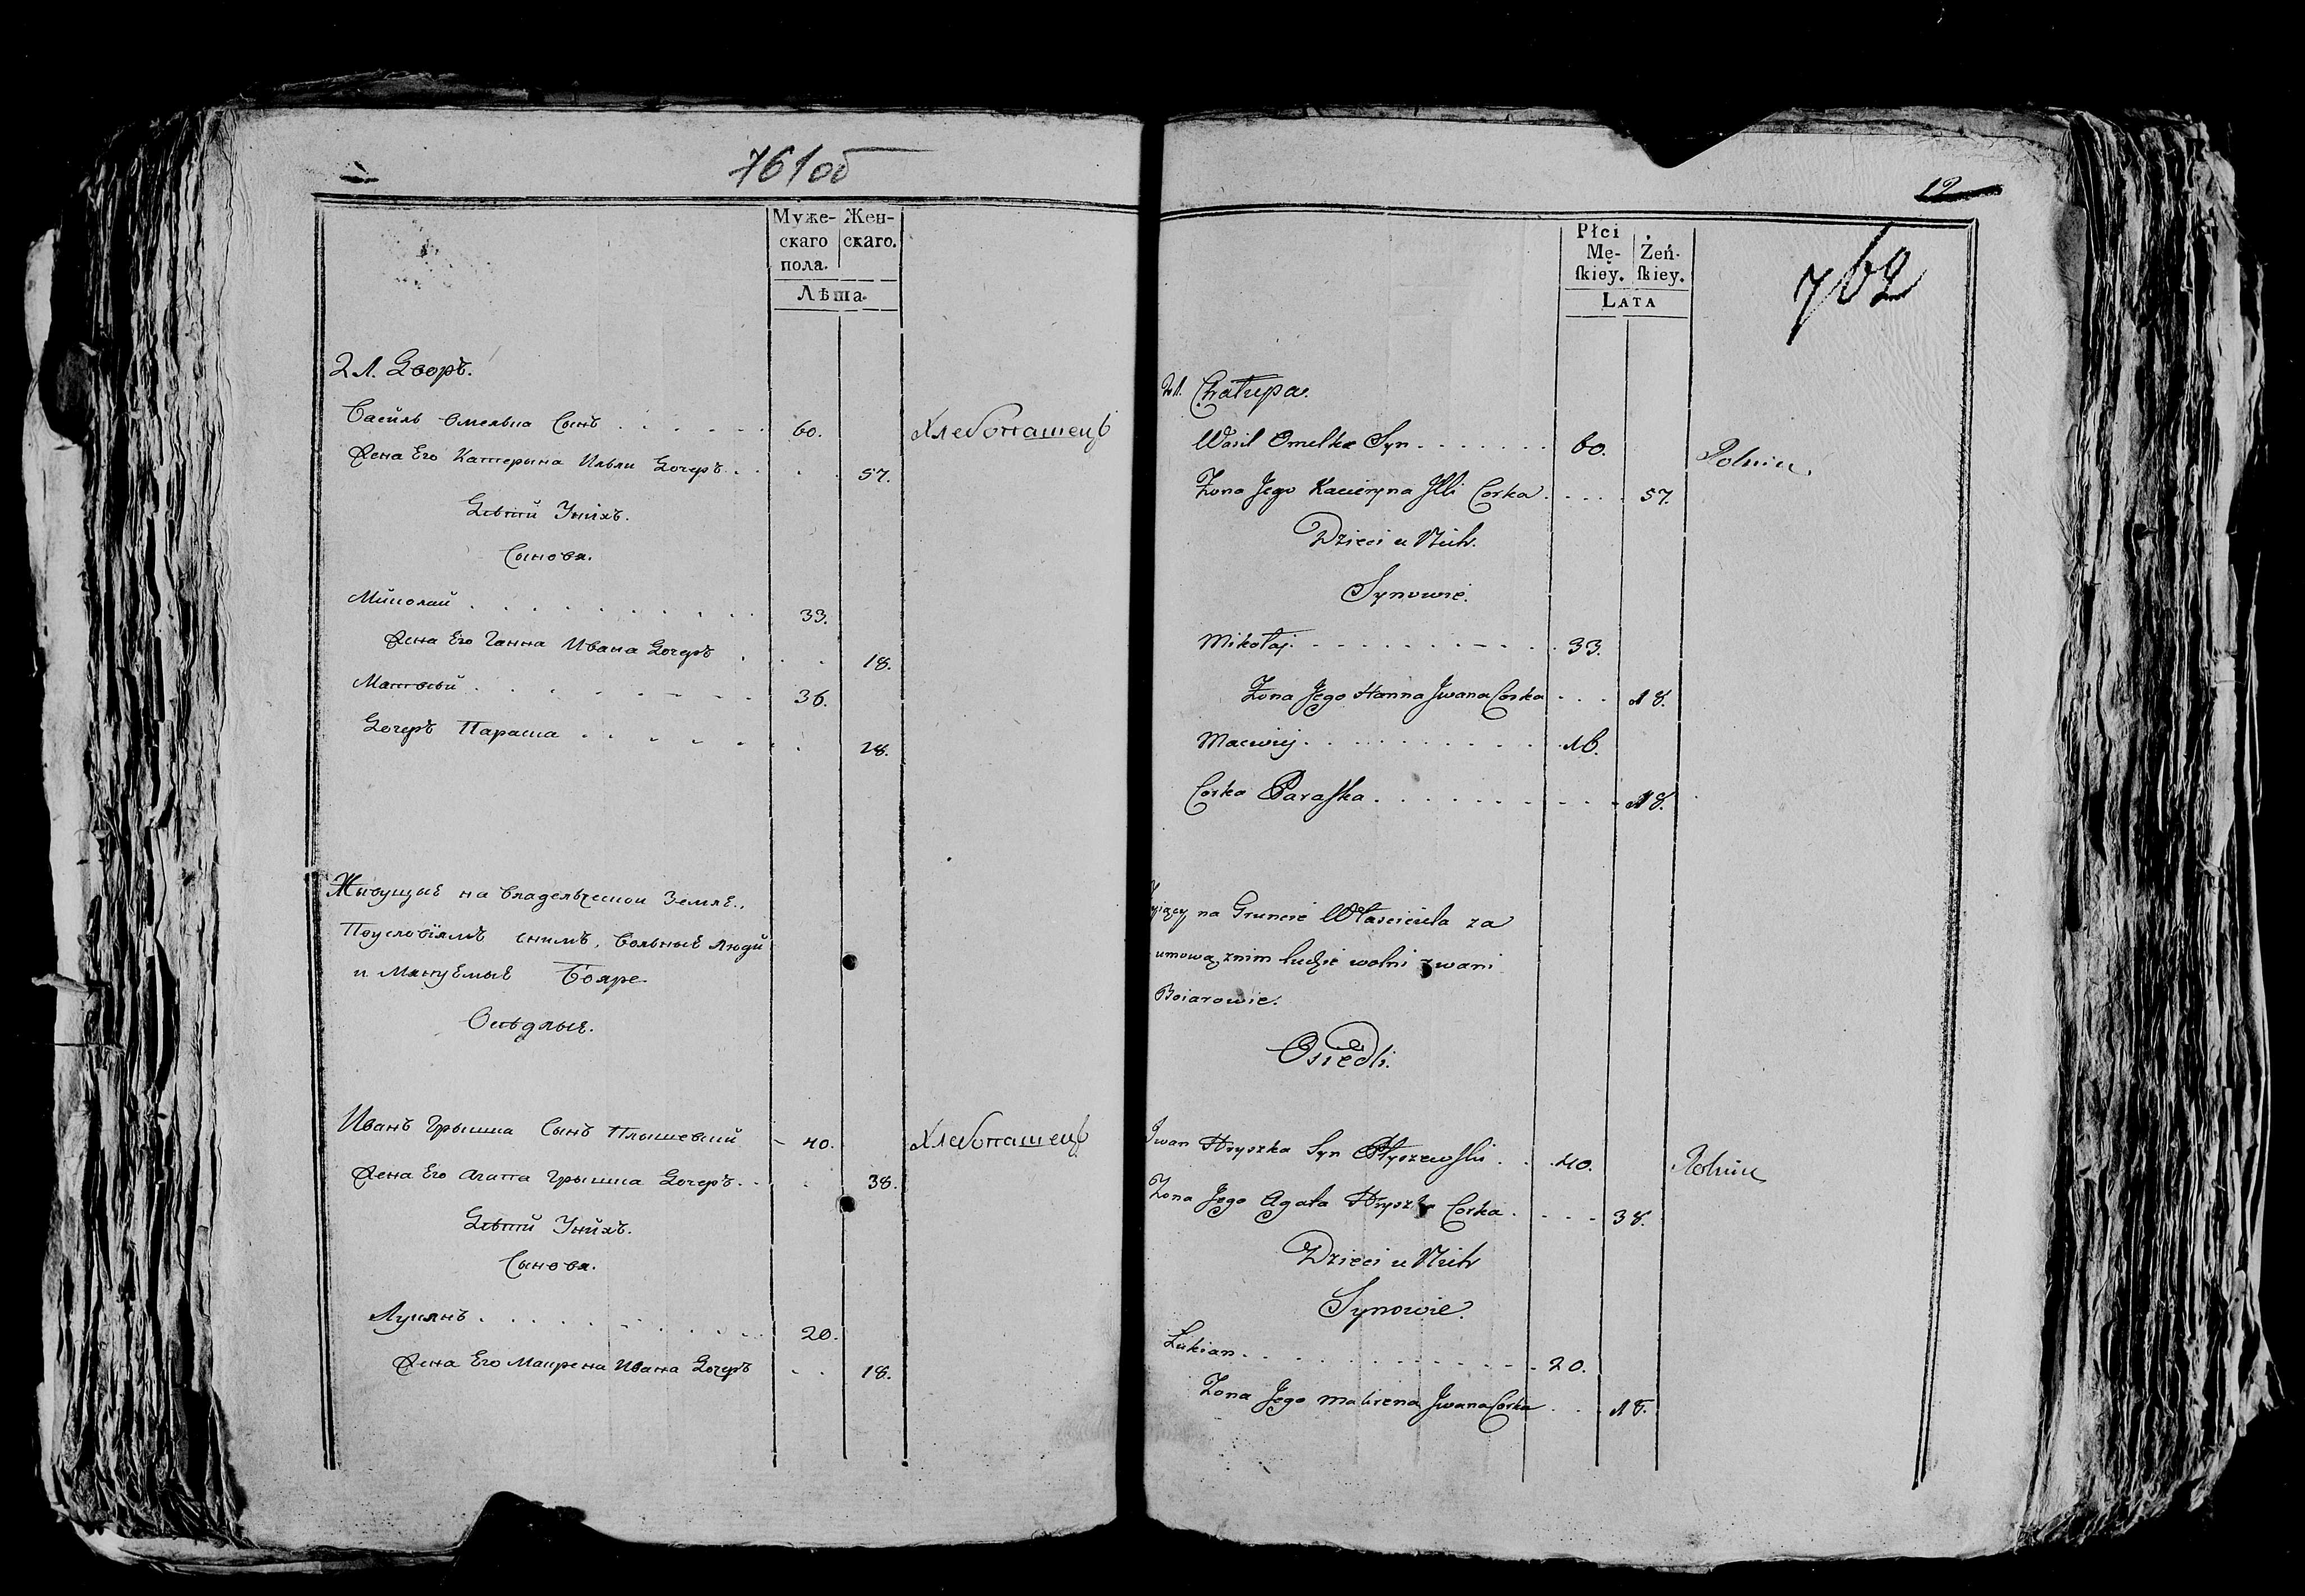 761об
Муже- Жен-
скаго скаго.
пола.
Лѣта.
21. Дворъ.
Василь Омелька Сынъ 60. Хлебопашецъ
Жена Его Катерына Ильи Дочеръ 57.
Дѣтѣй Унйхъ.
Сыновя.
Миколай 33.
Жена Его Ганна Ивана Дочеръ 18.
Матвѣй 36.
Дочеръ Параска 28.
Жывущые на владельческой Землѣ.,
Поусловїямъ снимъ, вольныѣ люди
и Мянуѣмыѣ Бояре.
Осѣдлыѣ.
Иванъ Грышка Сынъ Плышевский 40. Хлебопашецъ
Жена Его Агапа Грышка Дочеръ 38.
Дѣтѣй Унйхъ.
Сыновя.
Лукянъ 20.
Жена Его Макрена Ивана Дочеръ 18.
12
762
Płci
Mę- Żeń-
ſkiey. ſkiey.
LATA
21. Chałupa.
Wasil Omelka Syn 60. Rolnik
Zona Jego Kacieryna Jlli Corka 57.
Dzieci u Nich.
Synowie.
Mikołaj 33.
Zona Jego Hanna Jwana Corka 18.
Maciwiej 16.
Corka Paraſka 18.
yiący na Gruncie Własciciela za
umową znim ludzie wolni zwani
Boiarowie.
Osiedli.
Jwan Hryszka Syn Płyszewſki 40. Rolnik
Zona Jego Agata Hryszka Corka 38.
Dzieci u Nich
Synowie.
Łukian 20.
Zona Jego Makrena Jwana Corka 18.